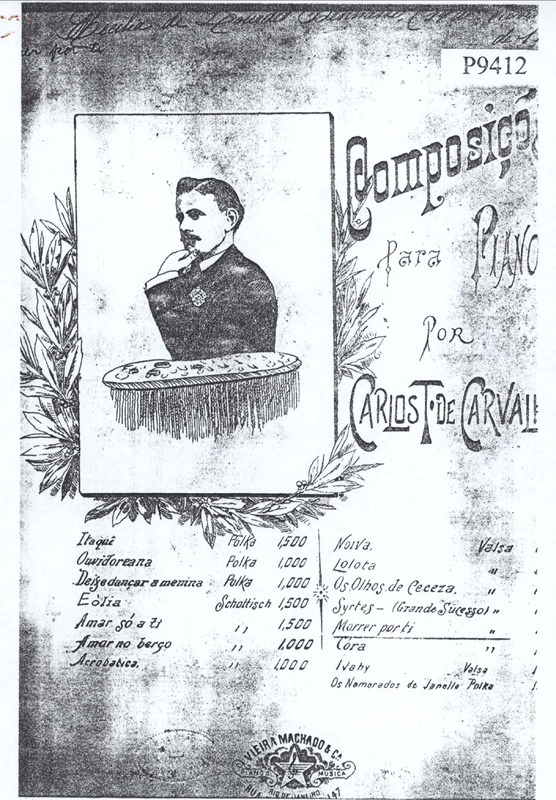 P9412
Composiçõ
Para PIANO
POR
CARLOS T. DE CARVALH
Itaquê Polka 1,500
Ouvidoreana Polka 1,000
Deixa dançar a menina Polka 1,000
Eólia Schottisch 1,500
Amar só a ti ,, 1,500
Amar no berço ,, 1,000
Acrobatica. ,, 1,000
Noiva. Valsa
Lolota "
Os Olhos de Ceceza. "
Syrtes - (Grande Sucesso) "
Morrer por ti "
Cora ,,
Ivahy Valsa
Os Namorados de Janella Polka
VIEIRA MACHADO & Ca.
PIANOS MUSICA
RIO DE JANEIRO 147